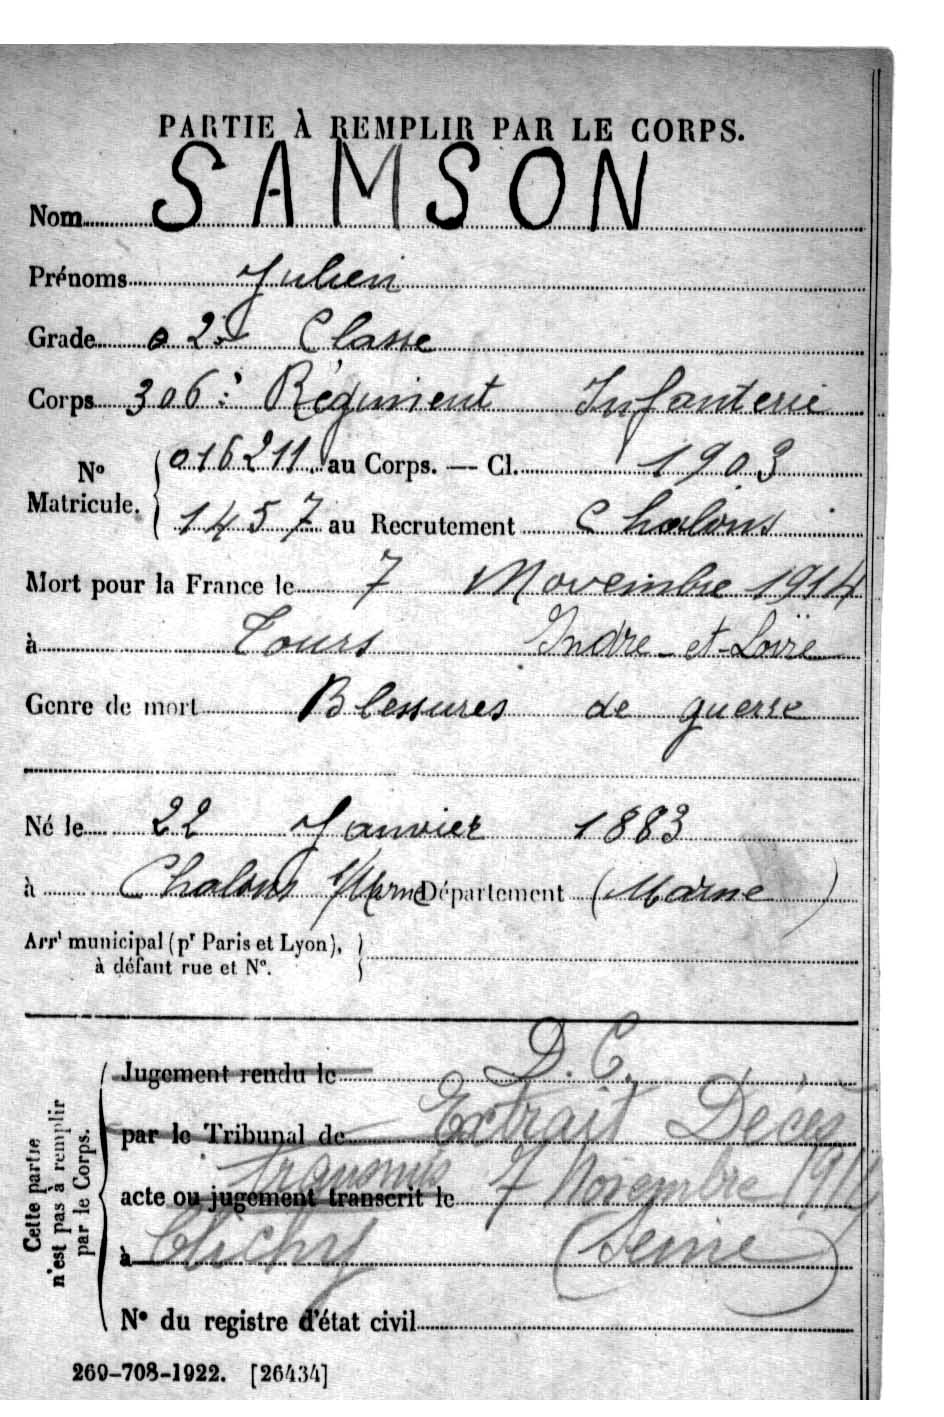 PARTIE À REMPLIR PAR LE CORPS.
Nom SAMSON
Prénoms Julien
Grade 2e Classe
Corps 306e Régiment Infanterie
No Matricule. 016211 au Corps. — Cl. 1903
1457 au Recrutement Chalons
Mort pour la France le 7 Novembre 1914
à Tours Indre-et-Loire
Genre de mort Blessures de guerre
Né le 22 Janvier 1883
à Chalons s/Marne Département (Marne)
Arrt municipal (pr Paris et Lyon),
à défaut rue et No.
Cette partie
n'est pas à remplir
par le Corps.
Jugement rendu le D. C.
par le Tribunal de Extrait Décès
transmis
acte ou jugement transcrit le 7 Novembre 1914
à Clichy (Seine)
No du registre d'état civil
269-708-1922. [26434]